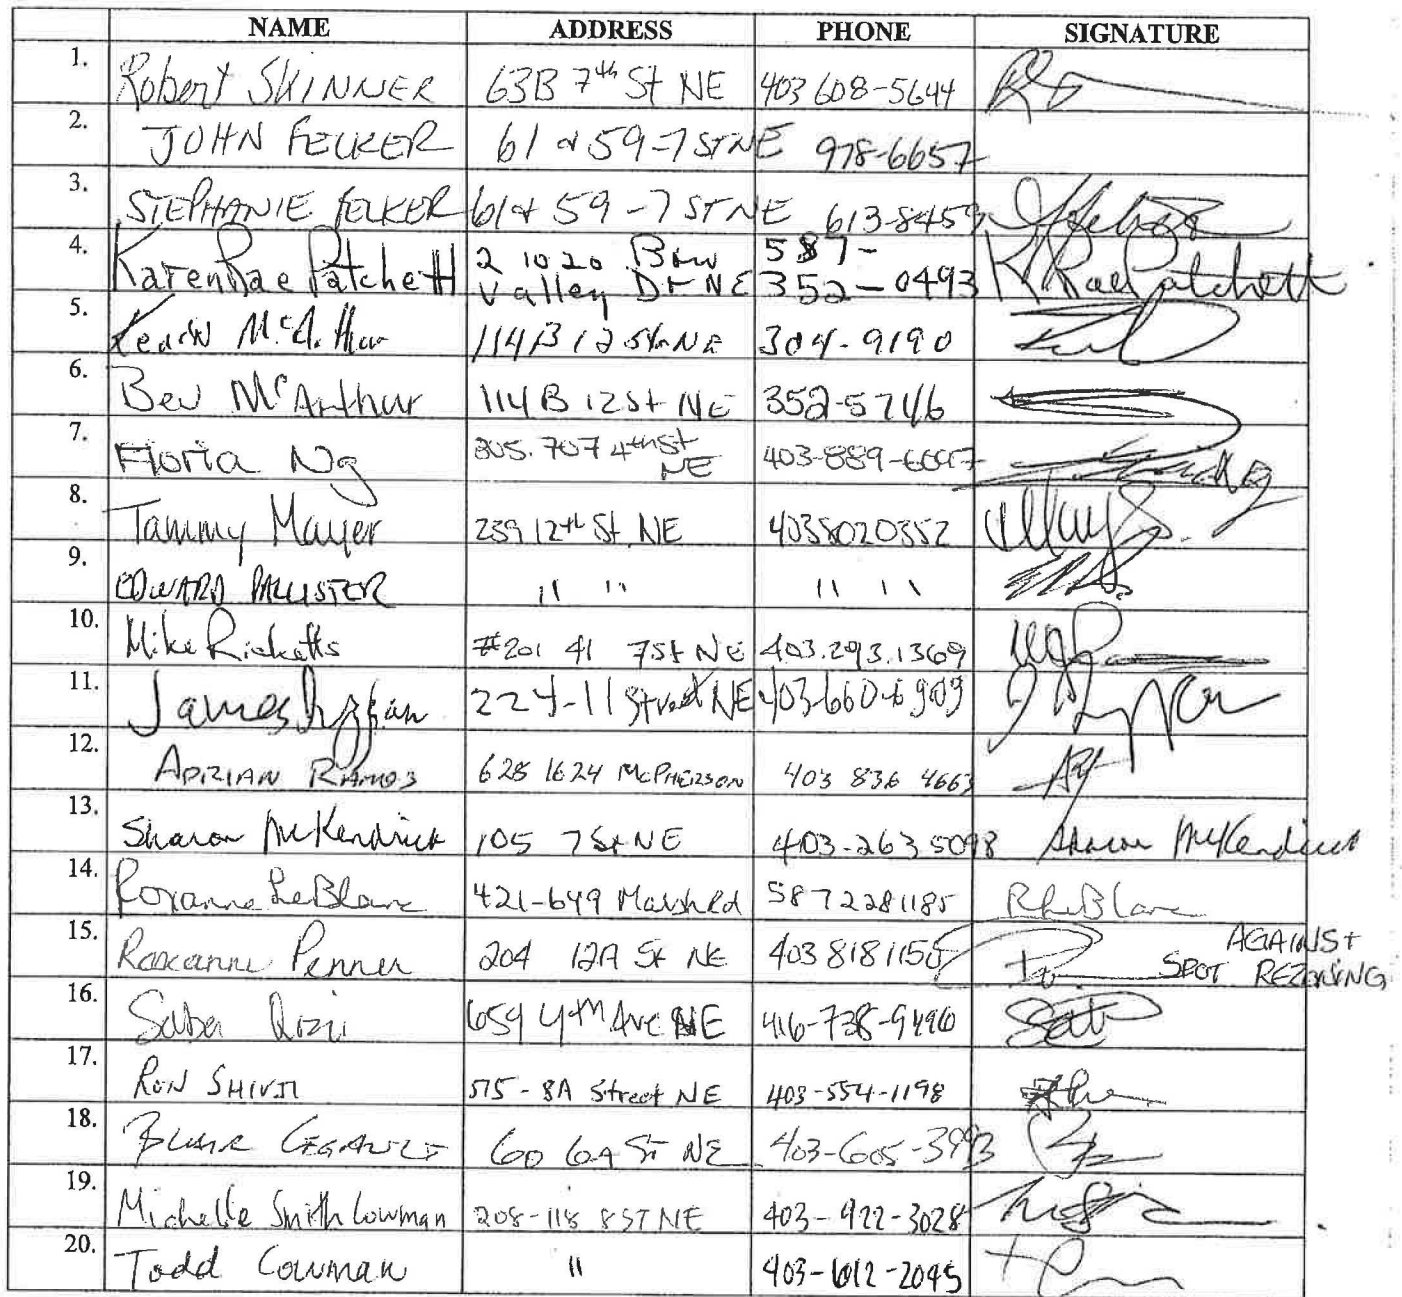 NAME ADDRESS PHONE SIGNATURE
1. Robert SKINNER 63B 7th St NE 403 608-5644
2. JOHN FELKER 61 & 59-7 ST NE 978-6657
3. STEPHANIE FELKER 61 & 59-7 ST NE 613-8459
4. Karen Rae Patchett 2 1020 Bow Valley Dr NE 587-352-0493 K Rae Patchett
5. McArthur 114B 12 St NE 304-9190
6. Bev McArthur 114B 12 St NE 352-5746
7. Floria Ng 805. 707 4th St NE 403-889-
8. Tammy Mayer 239 12th St NE 4038020352
9. EDWARD PALLISTER " " " "
10. Mike Ricketts #201 41 7St NE 403.293.1369
11. James 224-11 Street NE 403-660-6909
12. ADRIAN RAMOS 628 1624 McPHERSON 403 836 4663
13. Sharon McKendrick 105 7 St NE 403-263 5098 Sharon McKendrick
14. Roxanne LeBlanc 421-649 Marsh Rd 5872281185 R LeBlanc
15. Roxanne Penner 204 12A St NE 403 8181150 AGAINST
SPOT REZONING
16. Saba 659 4th Ave NE 416-738-9496
17. RON SHIVJI 515-8A Street NE 403-554-1198
18. BLAIR LEGAULT 60 6A ST NE 403-605-3993
19. Michelle Smith Cowman 208-118 8 ST NE 403-922-3028
20. Todd Cowman " 403-612-2045